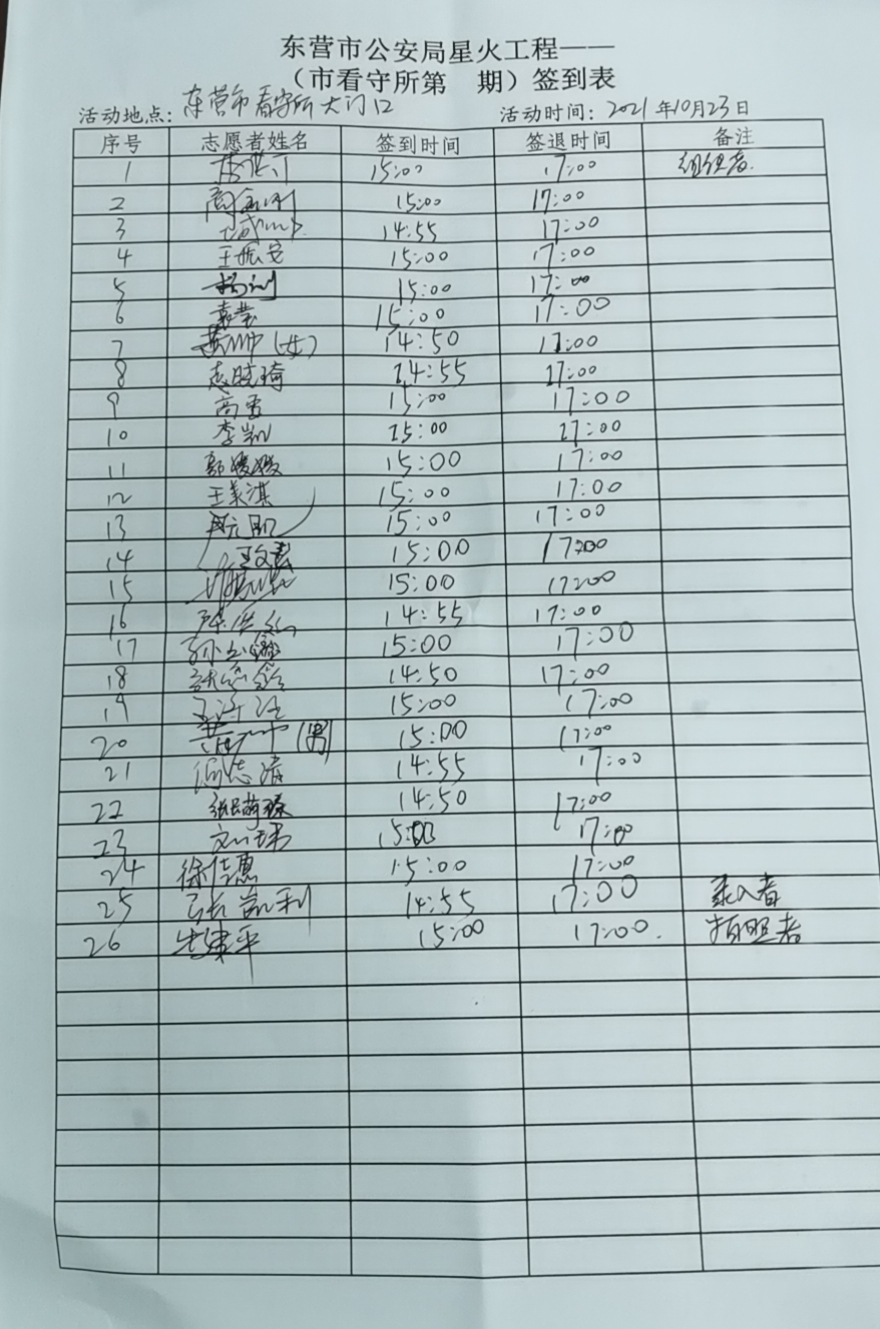 东营市公安局星火工程——
（市看守所第 期）签到表
活动地点：东营市看守所大门口 活动时间：2021年10月23日
序号 志愿者姓名 签到时间 签退时间 备注
1 15:00 17:00 组织者
2 15:00 17:00
3 14:55 17:00
4 王振安 15:00 17:00
5 15:00 17:00
6 15:00 17:00
7 (女) 14:50 17:00
8 14:55 17:00
9 高雪 15:00 17:00
10 李凯 15:00 17:00
11 郭媛媛 15:00 17:00
12 王美淇 15:00 17:00
13 15:00 17:00
14 15:00 17:00
15 15:00 17:00
16 14:55 17:00
17 15:00 17:00
18 14:50 17:00
19 15:00 17:00
20 (男) 15:00 17:00
21 14:55 17:00
22 14:50 17:00
23 15:00 17:00
24 徐佳惠 15:00 17:00
25 张凯利 14:55 17:00 录入者
26 15:00 17:00. 拍照者